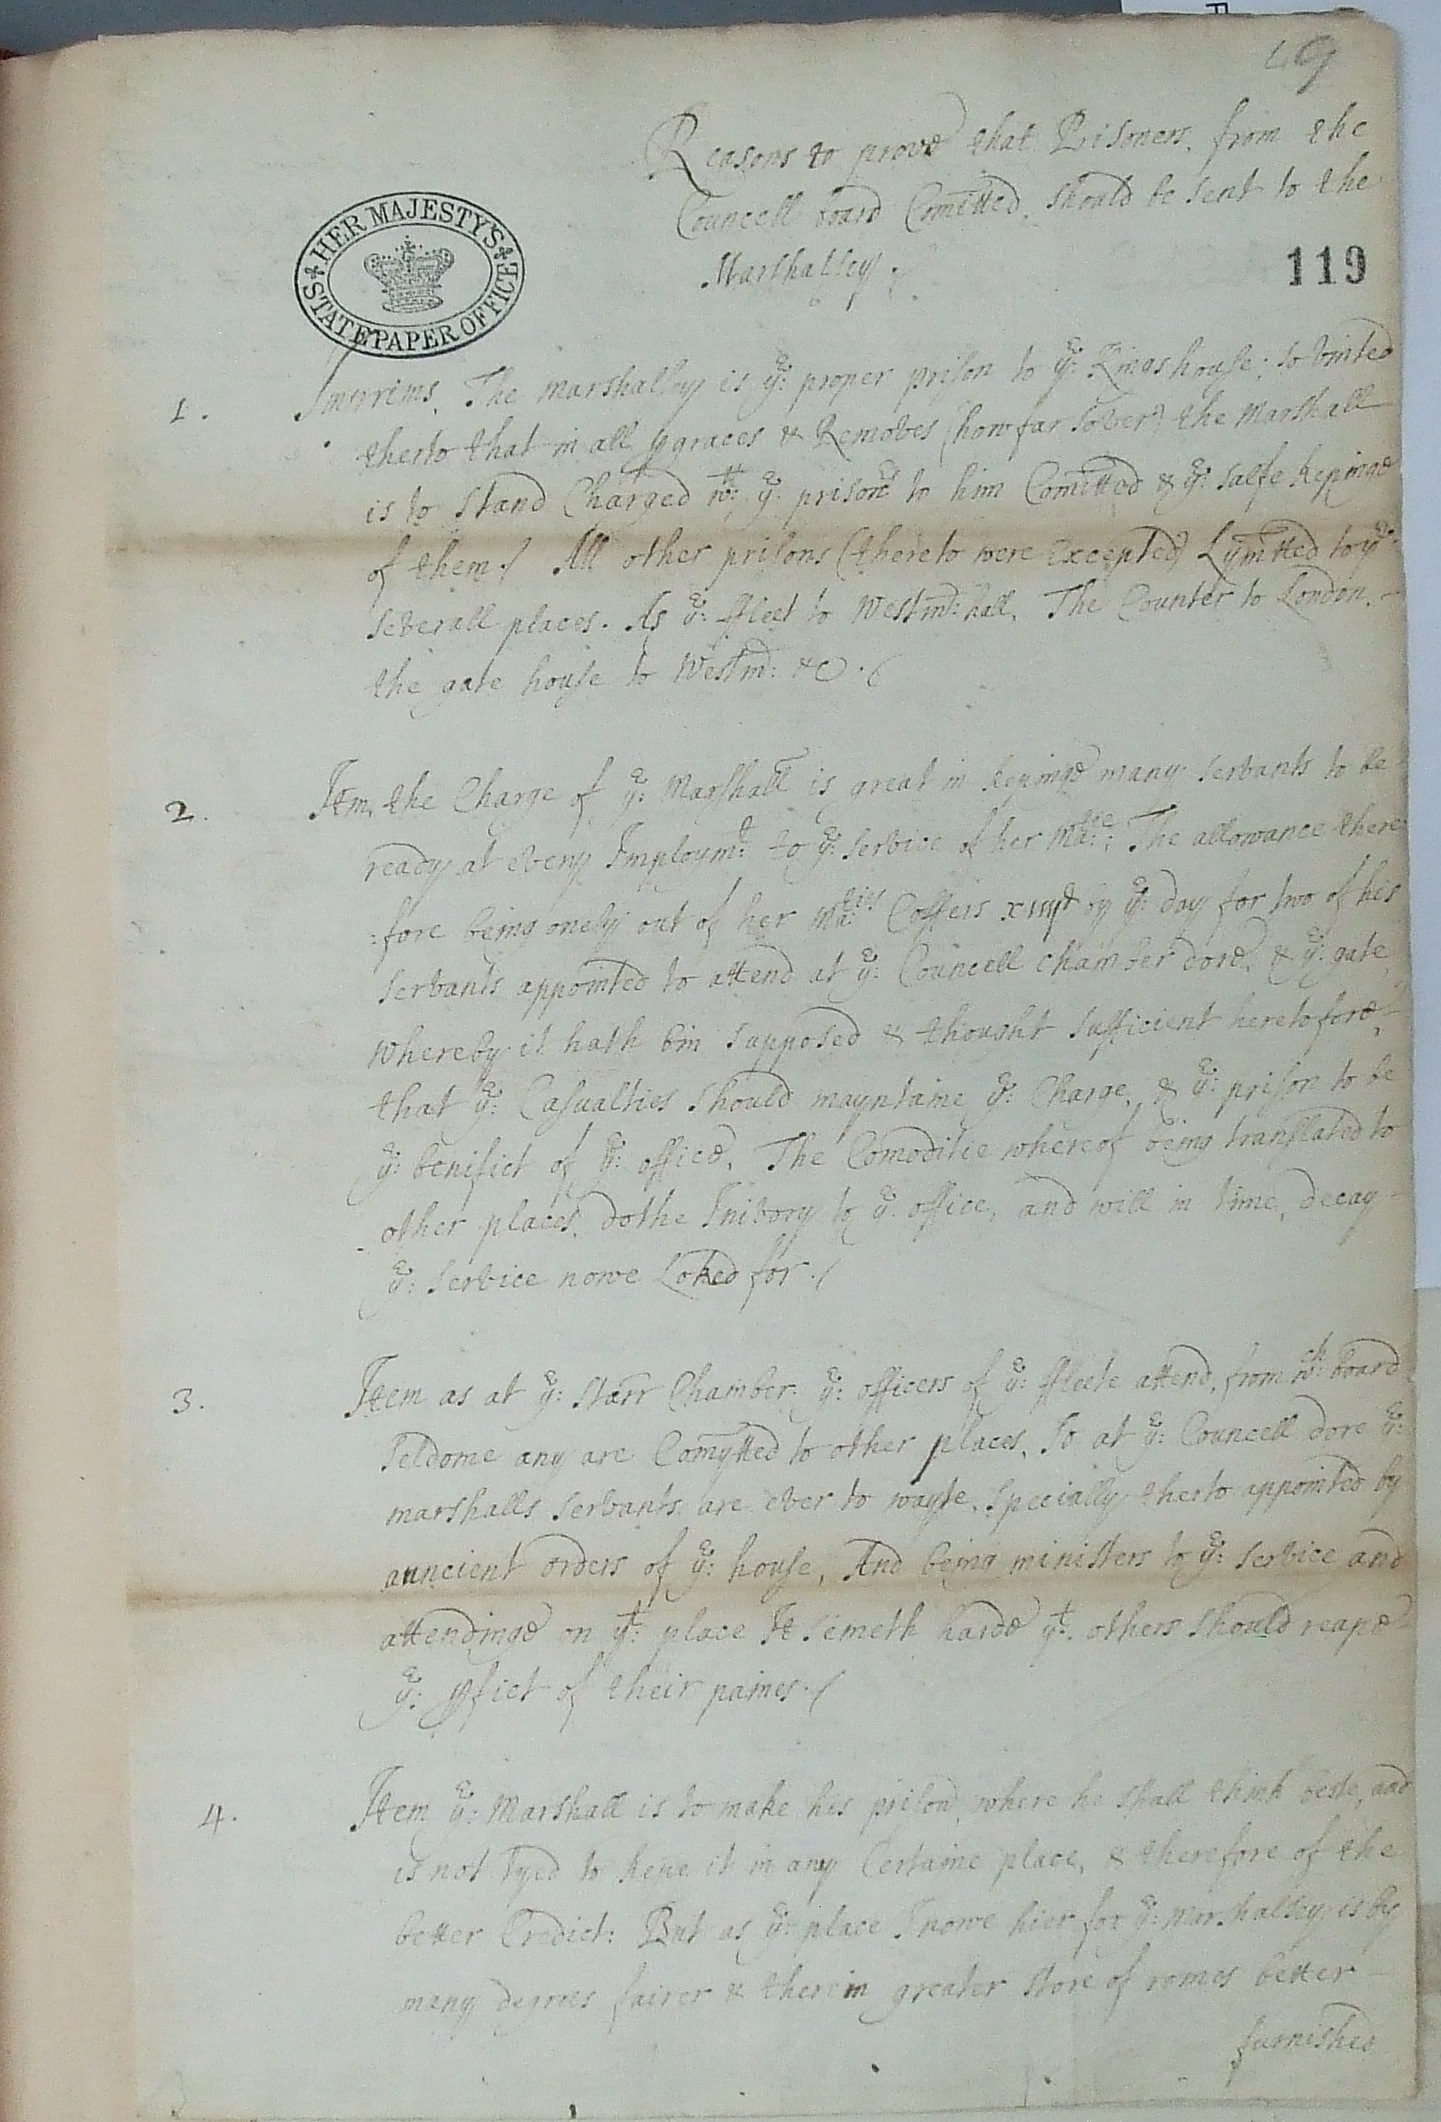 49
Reasons to prove that Prisoners, from the
Councell board Comitted, should be sent to the
Marshalsey./
HER MAJESTY'S STATE PAPER OFFICE
119
1. Imprimis, The marshalsey is ye: proper prison to ye: Kings house: so united
therto that in all pgraces & Removes (how far soever) the Marshall
is to stand Charged wth: ye: prisonrs to him Comitted & ye: salfe kepinge
of them./ All other prisons (thereto were Excepted) Lymitted to ye:
severall places. As ye: ffleet to Westmr: hall, The Counter to London,
the gate house to Westmr: &c ./
2. Item, the Charge of ye: Marshall is great in kepinge many servants to be
ready at every Imploymt: to ye: service of her Matie: The allowance there
:fore being onely out of her Maties Coffers xiiijd by ye: day for two of his
servants appointed to attend at ye: Councell chamber dore, & ye: gate,
whereby it hath bin supposed & thought sufficient heretofore,
that ye: Casualties should mayntaine ye: Charge, & ye: prison to be
ye: benifict of ye: office, The Comoditie whereof being translated to
other places, dothe to ye: office, and will in time, decay
ye: service nowe Loked for ./
3. Item as at ye: Starr Chamber ye: officers of ye: ffleete attend, from wch: board
seldome any are Comytted to other places, So at ye: Councell dore ye:
marshalls servants are ever to wayte, specially therto appointed by
auncient orders of ye: house, And being ministers to ye: service and
attendinge on yt: place It semeth harde yt: others should reape
ye: pfict of their paines ./
4. Item ye: Marshall is to make his prison, where he shall think beste, and
is not Tyed to kepe it in any Certaine place, & therefore of the
better Credict: But as ye: place I nowe hier for ye: Marshalsey is by
many degrees fairer & therein greater store of romes better
furnished